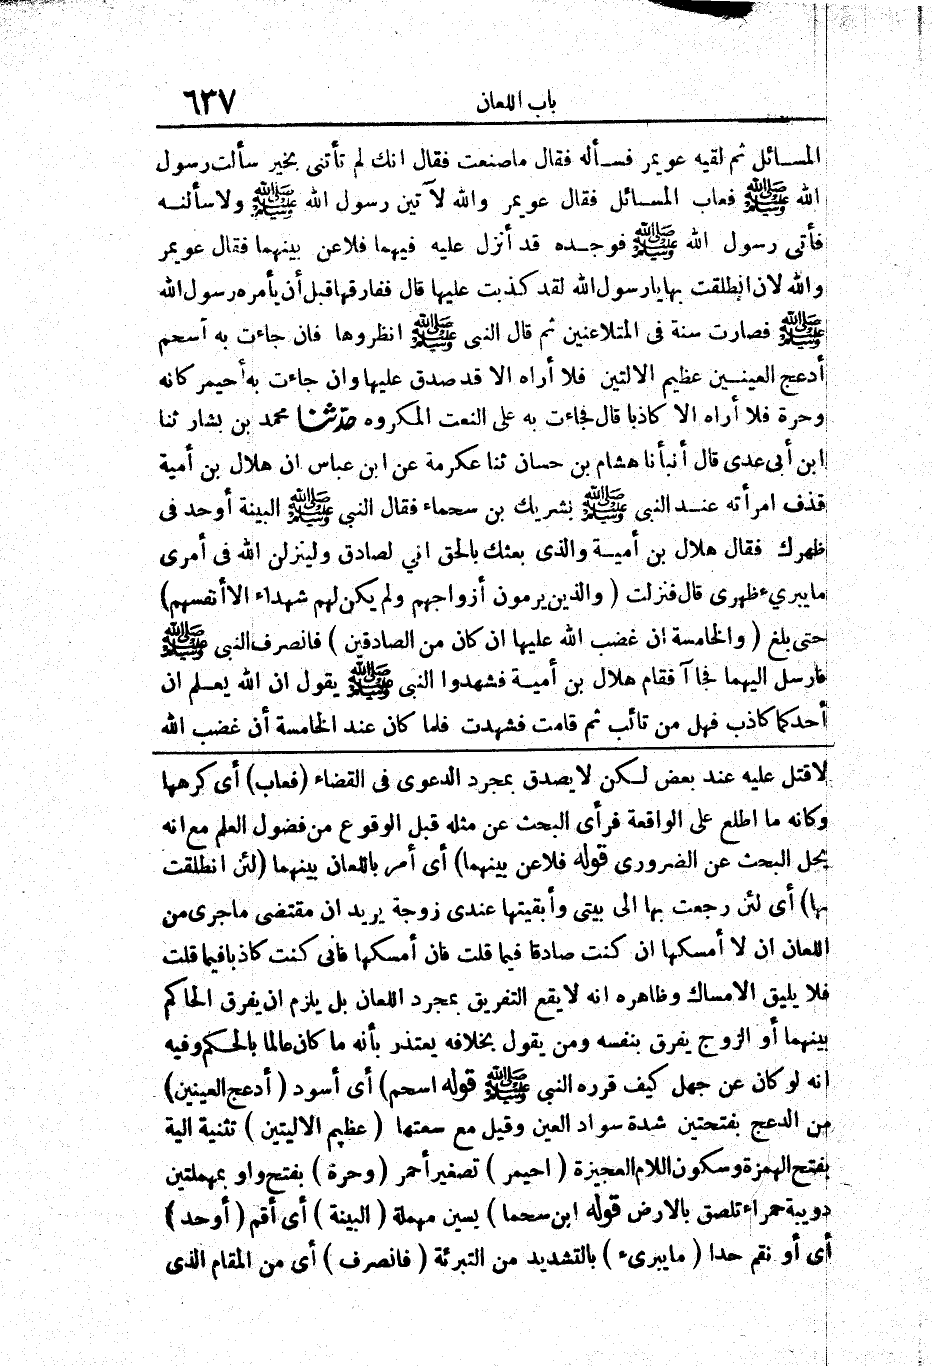 باب اللعان ٦٣٧
المسائل ثم لقيه عويمر فسأله فقال ماصنعت فقال انك لم تأتنى بخير سألت رسول
الله ﷺ فعاب المسائل فقال عويمر والله لآتين رسول الله ﷺ ولاسألنه
فأتى رسول الله ﷺ فوجده قد أنزل عليه فيهما فلاعن بينهما فقال عويمر
والله لان انطلقت بها يارسول الله لقد كذبت عليها قال ففارقها قبل أن يأمره رسول الله
ﷺ فصارت سنة فى المتلاعنين ثم قال النبى ﷺ انظروها فان جاءت به أسحم
أدعج العينين عظيم الالتين فلا أراه الا قد صدق عليها وان جاءت به أحيمر كانه
وحرة فلا أراه الا كاذبا قال فجاءت به على النعت المكروه حدثنا محمد بن بشار ثنا
ابن أبى عدى قال أنبأنا هشام بن حسان ثنا عكرمة عن ابن عباس ان هلال بن أمية
قذف امرأته عند النبى ﷺ بشريك بن سحماء فقال النبى ﷺ البينة أوحد فى
ظهرك فقال هلال بن أمية والذى بعثك بالحق انى لصادق ولينزلن الله فى أمرى
مايبرىء ظهرى قال فنزلت ( والذين يرمون أزواجهم ولم يكن لهم شهداء الا أنفسهم)
حتى بلغ ( والخامسة ان غضب الله عليها ان كان من الصادقين ) فانصرف النبى ﷺ
فأرسل اليهما فجاآ فقام هلال بن أمية فشهدوا النبى ﷺ يقول ان الله يعلم ان
أحدكما كاذب فهل من تائب ثم قامت فشهدت فلما كان عند الخامسة أن غضب الله
لاقتل عليه عند بعض لكن لايصدق بمجرد الدعوى فى القضاء (فعاب) أى كرهها
وكانه ما اطلع على الواقعة فرأى البحث عن مثله قبل الوقوع من فضول العلم مع انه
يخل البحث عن الضرورى قوله فلاعن بينهما) أى أمر باللعان بينهما (لئن انطلقت
بها) أى لئن رجعت بها الى بيتى وأبقيتها عندى زوجة يريد ان مقتضى ماجرى من
اللعان ان لا أمسكها ان كنت صادقا فيما قلت فان أمسكها فانى كنت كاذبا فيما قلت
فلا يليق الامساك وظاهره انه لايقع التفريق بمجرد اللعان بل يلزم ان يفرق الحاكم
بينهما أو الزوج يفرق بنفسه ومن يقول بخلافه يعتذر بأنه ما كان عالما بالحكم وفيه
انه لو كان عن جهل كيف قرره النبى ﷺ قوله اسحم) أى أسود ( أدعج العينين)
من الدعج بفتحتين شدة سواد العين وقيل مع سعتها ( عظيم الاليتين ) تثنية الية
بفتح الهمزة وسكون اللام العجيزة ( احيمر ) تصغير أحمر ( وحرة ) بفتح واو بمهملتين
دويبة حمراء تلصق بالارض قوله ابن سحما ) بسين مهملة ( البينة ) أى أقم ( أوحد )
أى أو نقم حدا ( مايبرىء ) بالتشديد من التبرئة ( فانصرف ) أى من المقام الذى